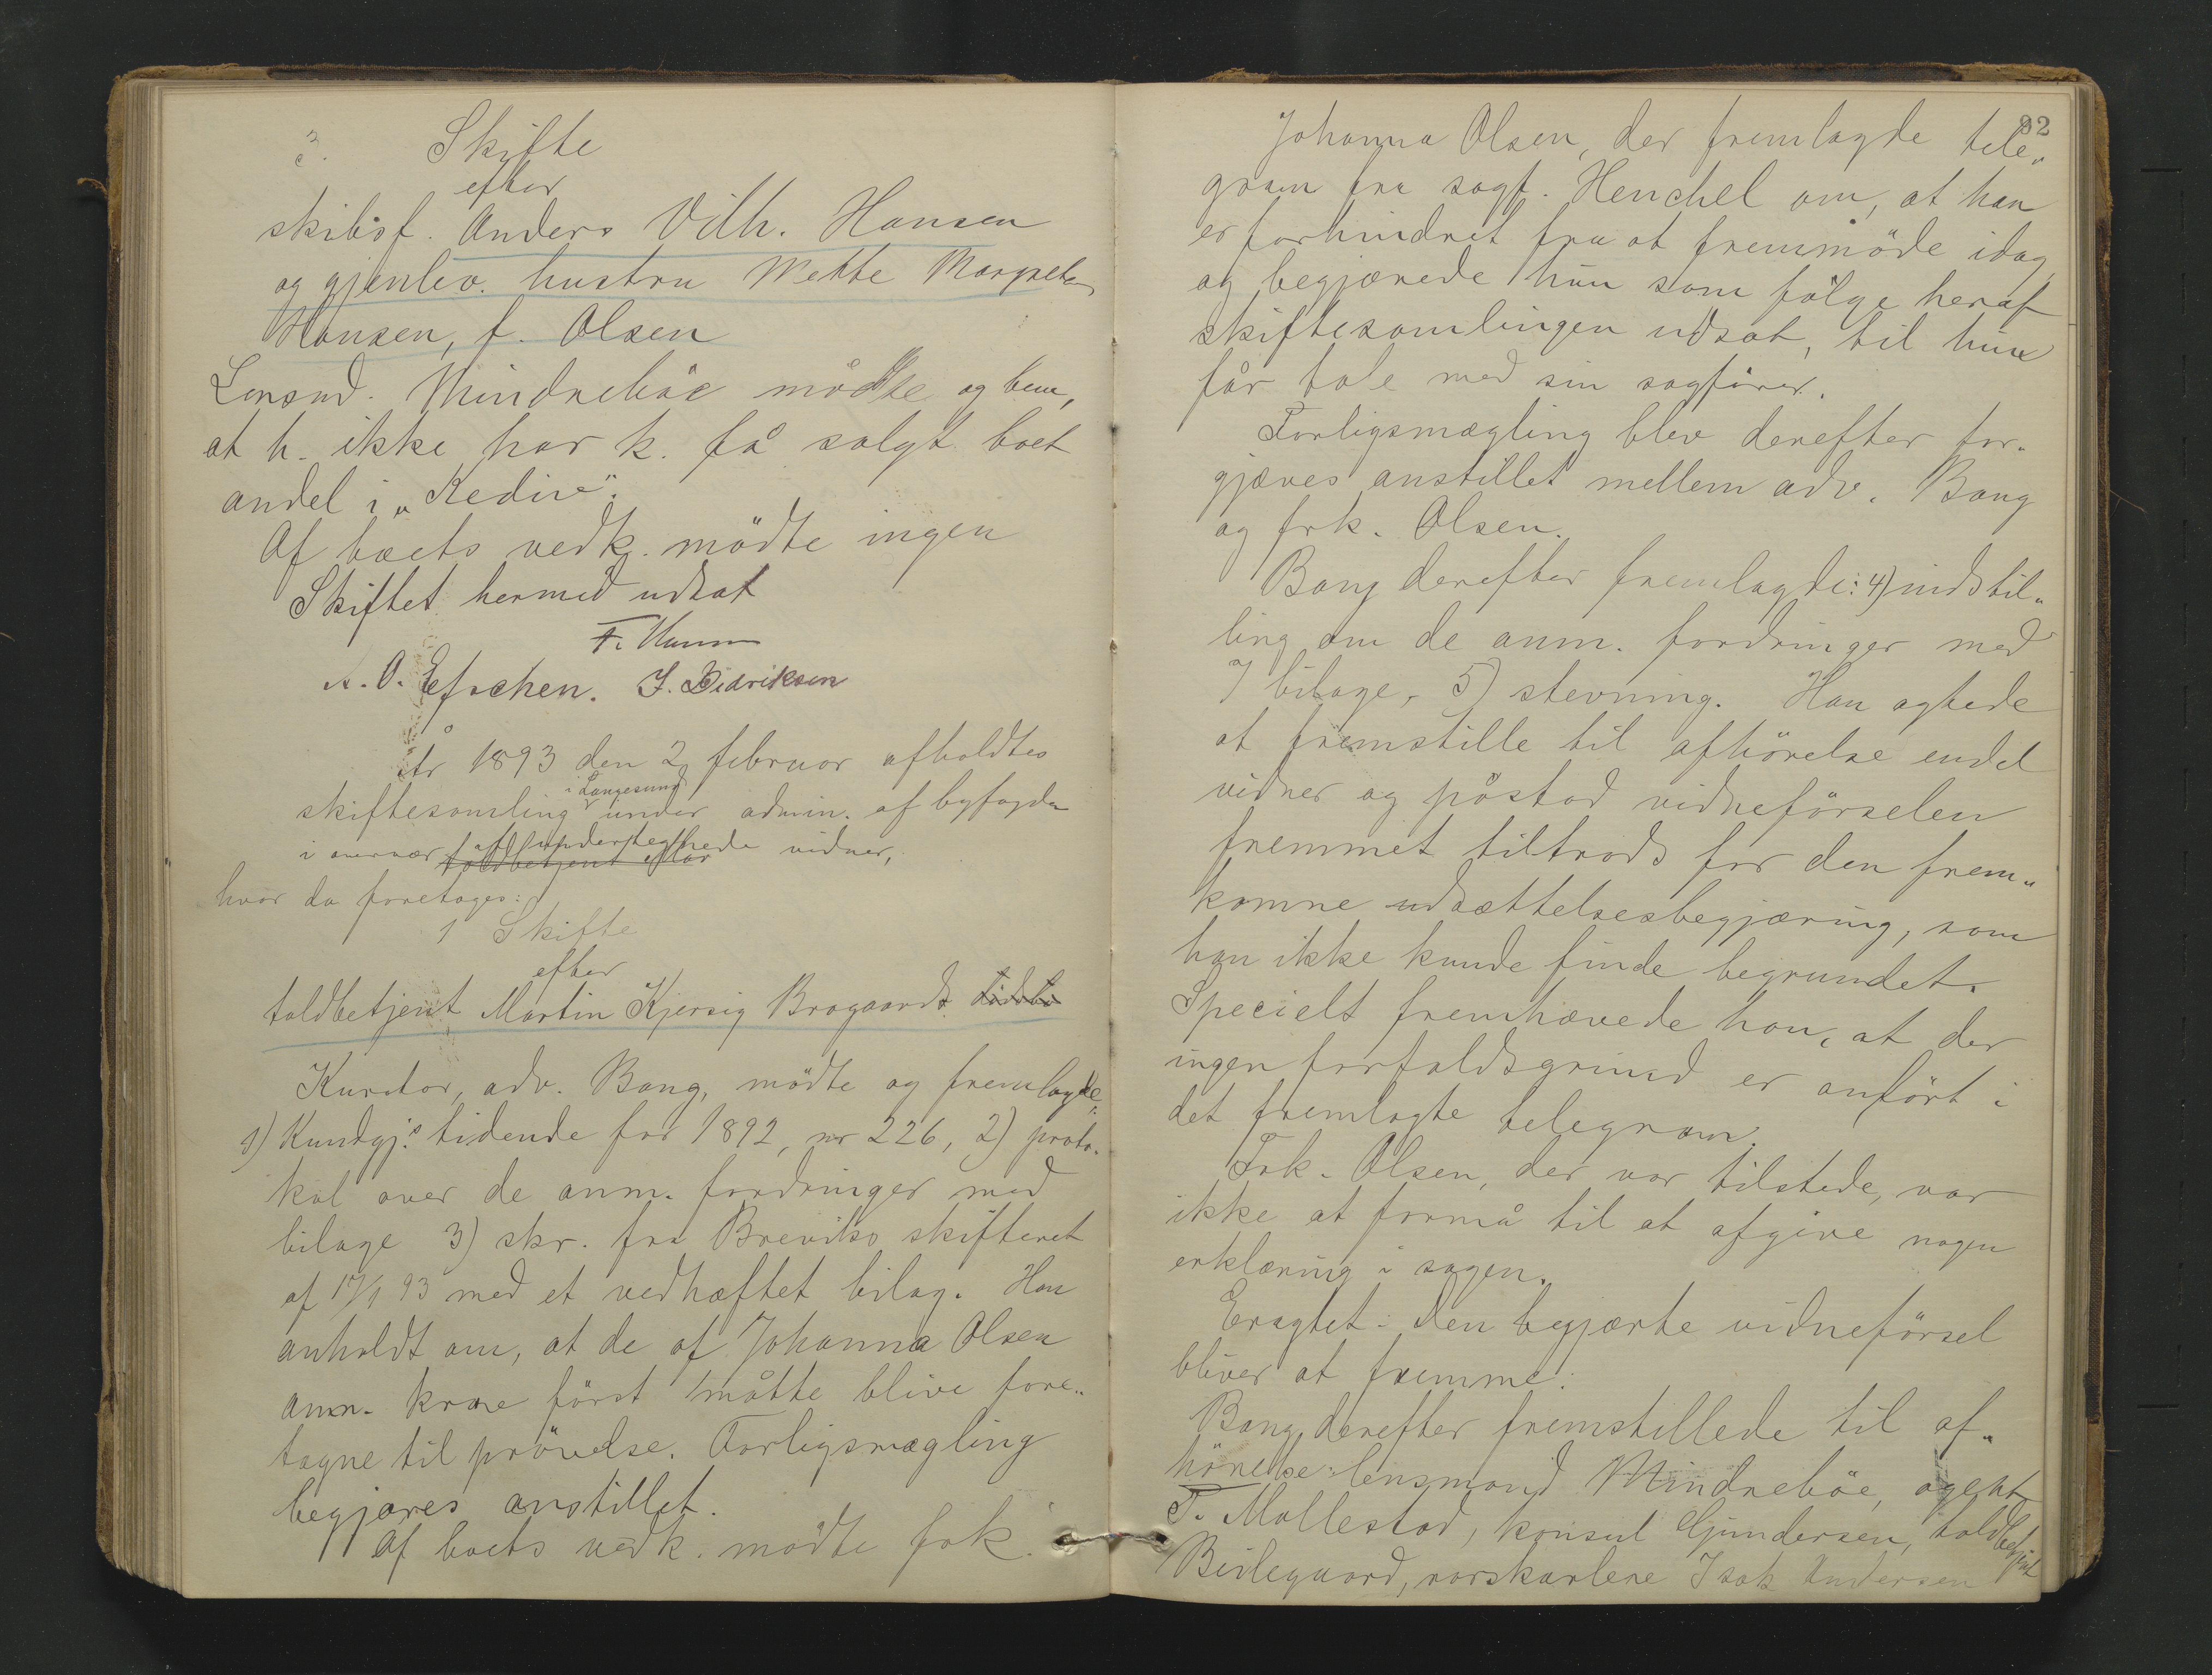 3. Skifte
efter
skibsf. Anders Vilh. Hansen
og gjenlev. hustru Mette Margrete
Hansen, f. Olsen
Lensmd. Mindrebøe mödte og bem,
at h. ikke har k. få solgt boet
andel i „Kedive".
Af boets vedk. mödte ingen
Skiftet hermed udsat
F. Hamm
J. Didriksen
År 1893 den 2 februar afholdtes
skiftesamling i Langesund under admin. af byfogden
i overvær af undertegnede vidner,
hvor da foretoges:
1 Skifte
efter
toldbetjent Martin Kjersig Bragaard
Kurator, adv. Bang, mödte og fremlagde:
1) Kundgj.s tidende for 1892, nr 226, 2) proto-
kol over de anm. fordringer med
bilage 3) skr. fra Breviks skifteret
af 17/1 93 med et vedhæftet bilag. Han
anholdt om, at de af Johanna Olsen
anm. krav först måtte blive fore„
tagne til prövelse. Forligsmægling
begjæres anstillet.
Af boets vedk. mödte frk.
82
Johanna Olsen, der fremlagde tele„
gram fra sagf. Henchel om, at han
er forhindret fra at fremmöde idag,
og begjærede hun som fölge heraf
skiftesamlingen udsat, til hun
får tale med sin sagförer.
Forligsmægling blev derefter for-
gjæves anstillet mellem adv. Bang
og frk. Olsen.
Bang derefter fremlagde: 4) indstil„
ling om de anm. fordringer med
7 bilage, 5) stevning. Han agtede
at fremstille til afhörelse endel
vidner og påstod vidneförselen
fremmet tiltrods for den frem„
komne udsættelsesbegjæring, som
han ikke kunde finde begrundet.
Specielt fremhævede han, at der
ingen forfaldsgrund er anfört i
det fremlagte telegram.
Frk. Olsen, der var tilstede, var
ikke at formå til at afgive nogen
erklæring i sagen.
Eragtet: Den begjærte vidneförsel
bliver at fremme.
Bang derefter fremstillede til af„
hörelse: lensmand Mindrebøe, agent
T. Mollestad, konsul Gundersen, toldbetjent
Birlegaard, rorskarlene Isak Andersen